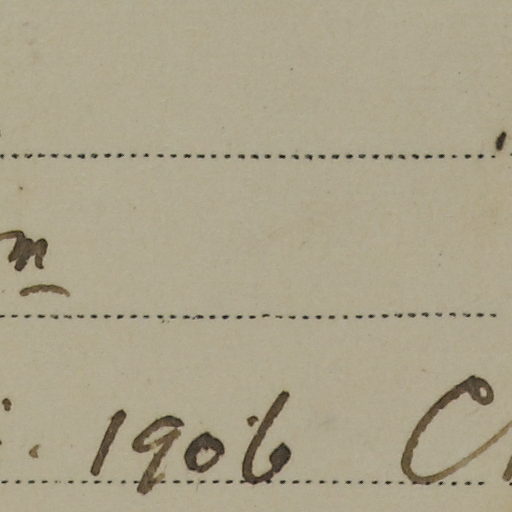 m
. 1906 C